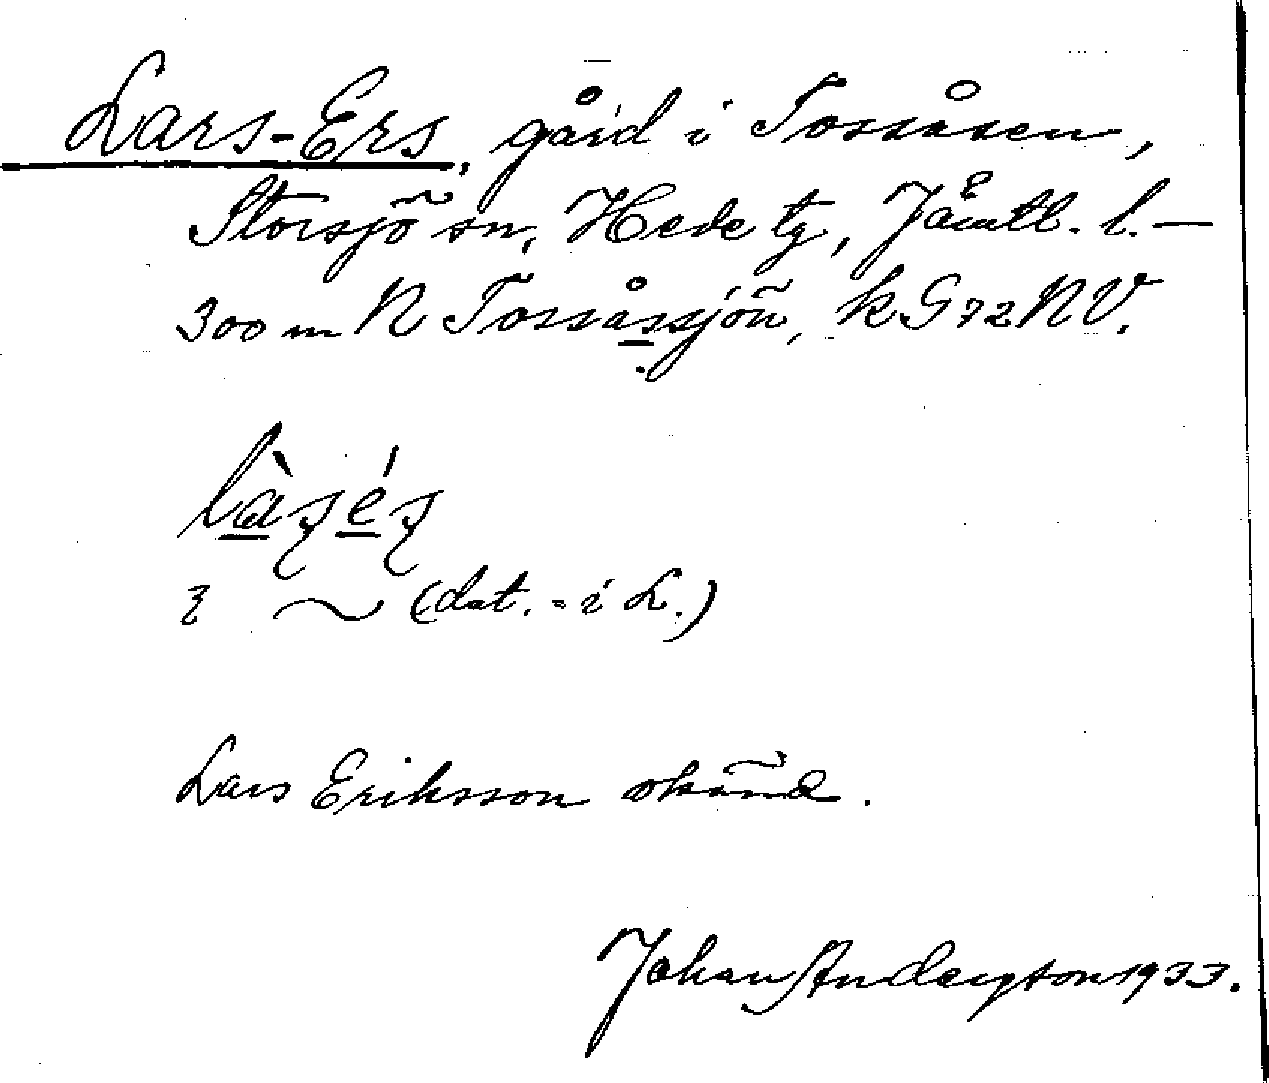 Lars-Ers, gård i Tossåsen,
Storsjö sn, Hede tg, Jämtl. l. —
300 m N Tossåssjön, k G 72 NV.
làsés
i ~ (dat. = i L.)
Lars Eriksson okänd.
Johan Anderson 1933.